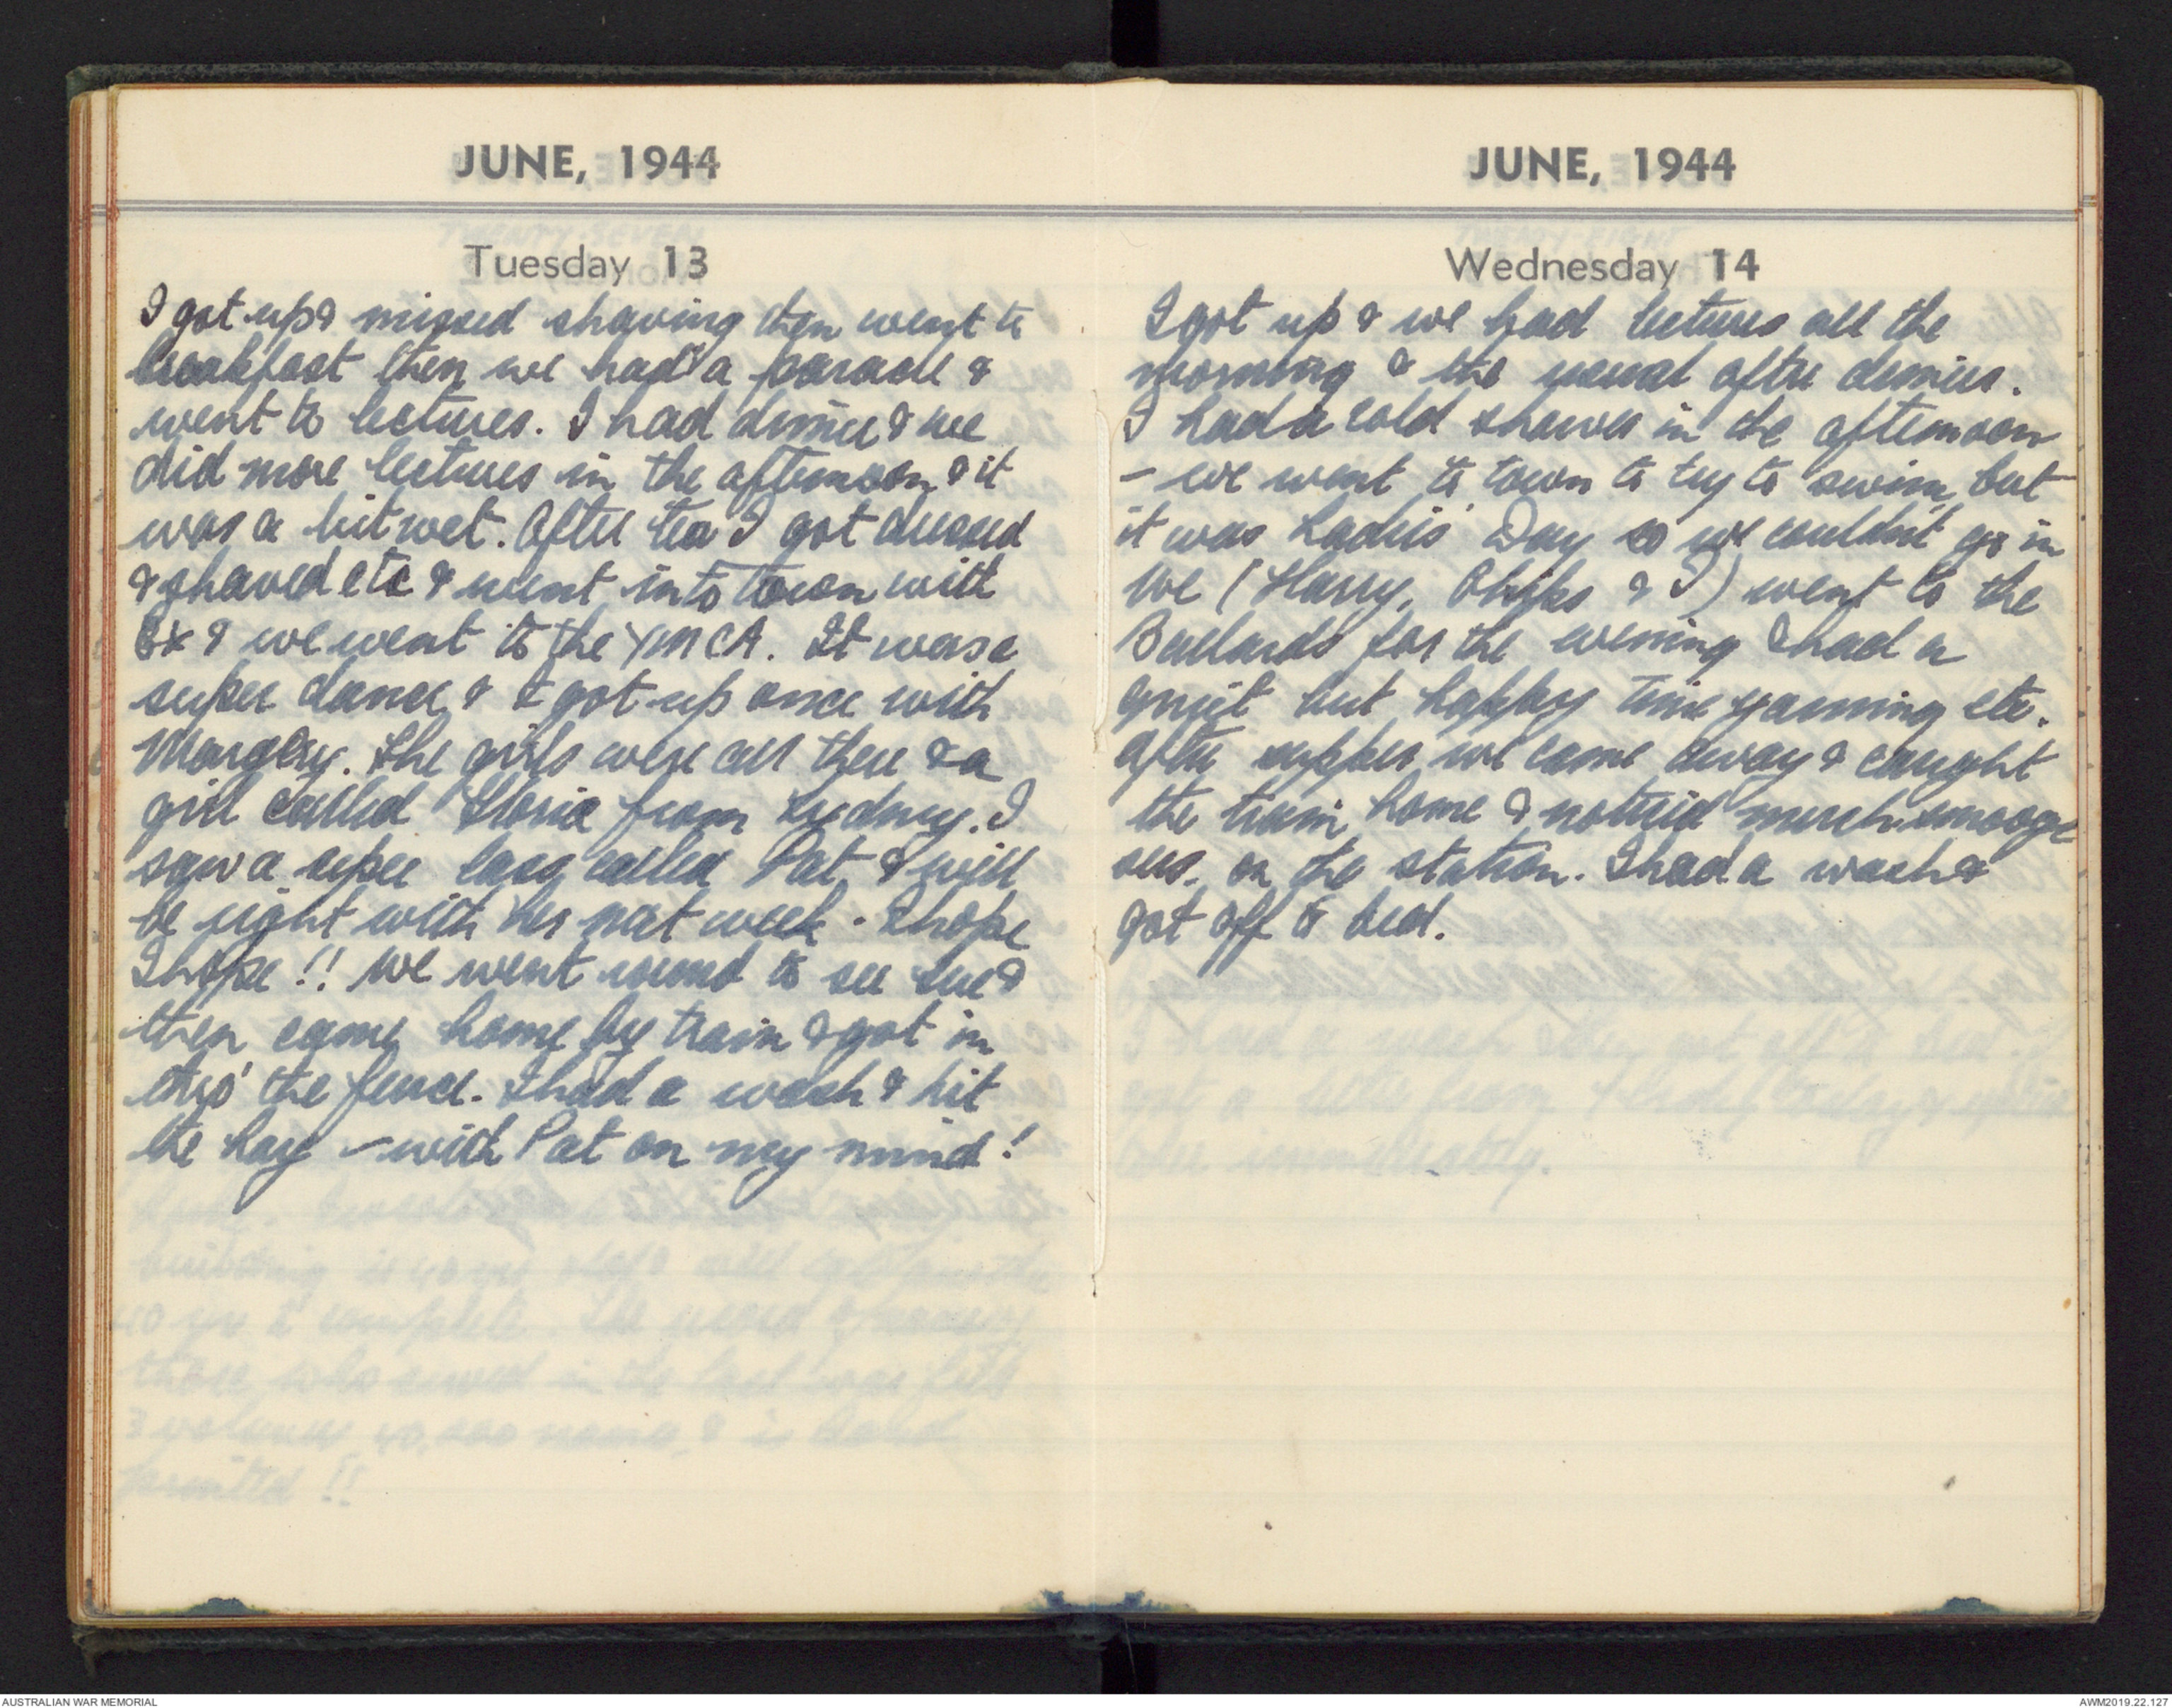 JUNE, 1944
Tuesday 13
I got up & missed shaving then went to
breakfast then we had a parade &
went to lectures. I had dinner & we
did more lectures in the afternoon & it
was a bit wet. After tea I got dressed
& shaved etc & went into town with
& we went to the YMCA. It was a
super dance & I got up once with
Margery. The girls were all there & a
girl called Gloria from Sydney. I
saw a super lass called Pat & will
be right with her next week - I hope
I hope!! We went round to see Sue &
then came home by train & got in
thro' the fence. I had a wash & hit
the hay - with Pat on my mind!
JUNE, 1944
Wednesday 14
I got up & we had lectures all the
morning & the usual after dinner.
I had a cold shower in the afternoon
- we went to town to try to swim but
it was Ladies' Day so we couldn't go in
We (Harry, Chips & I) went to the
Bullards for the evening & had a
quiet but happy time yarning etc.
After supper we came away & caught
the train home & noticed much smooge
ous. on the station. I had a wash &
got off to bed.
AUSTRALIAN WAR MEMORIAL
AWM2019.22.127